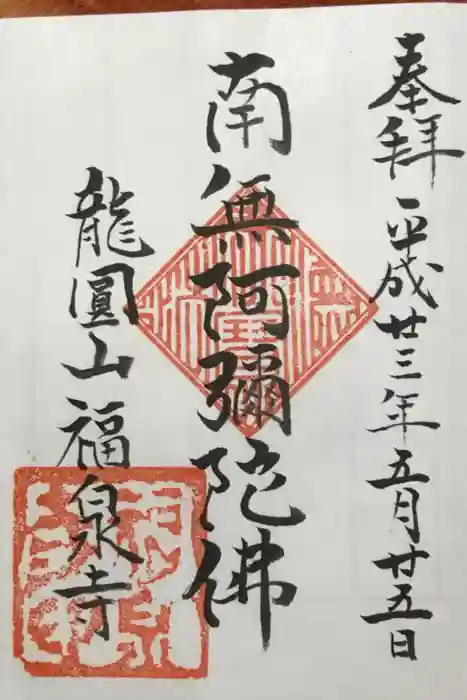 奉拝 平成廿三年五月廿五日
南無阿彌陀佛
龍圓山福泉寺